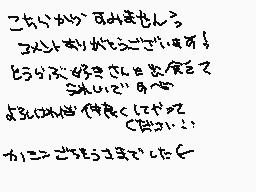 こちらから すみません〉〉
コメントありがとうございます!
とうらぶ好きさんと出会えて
うれしいです
よろしければ 仲良くしてやって
ください!!
カニンごちそうさまでした